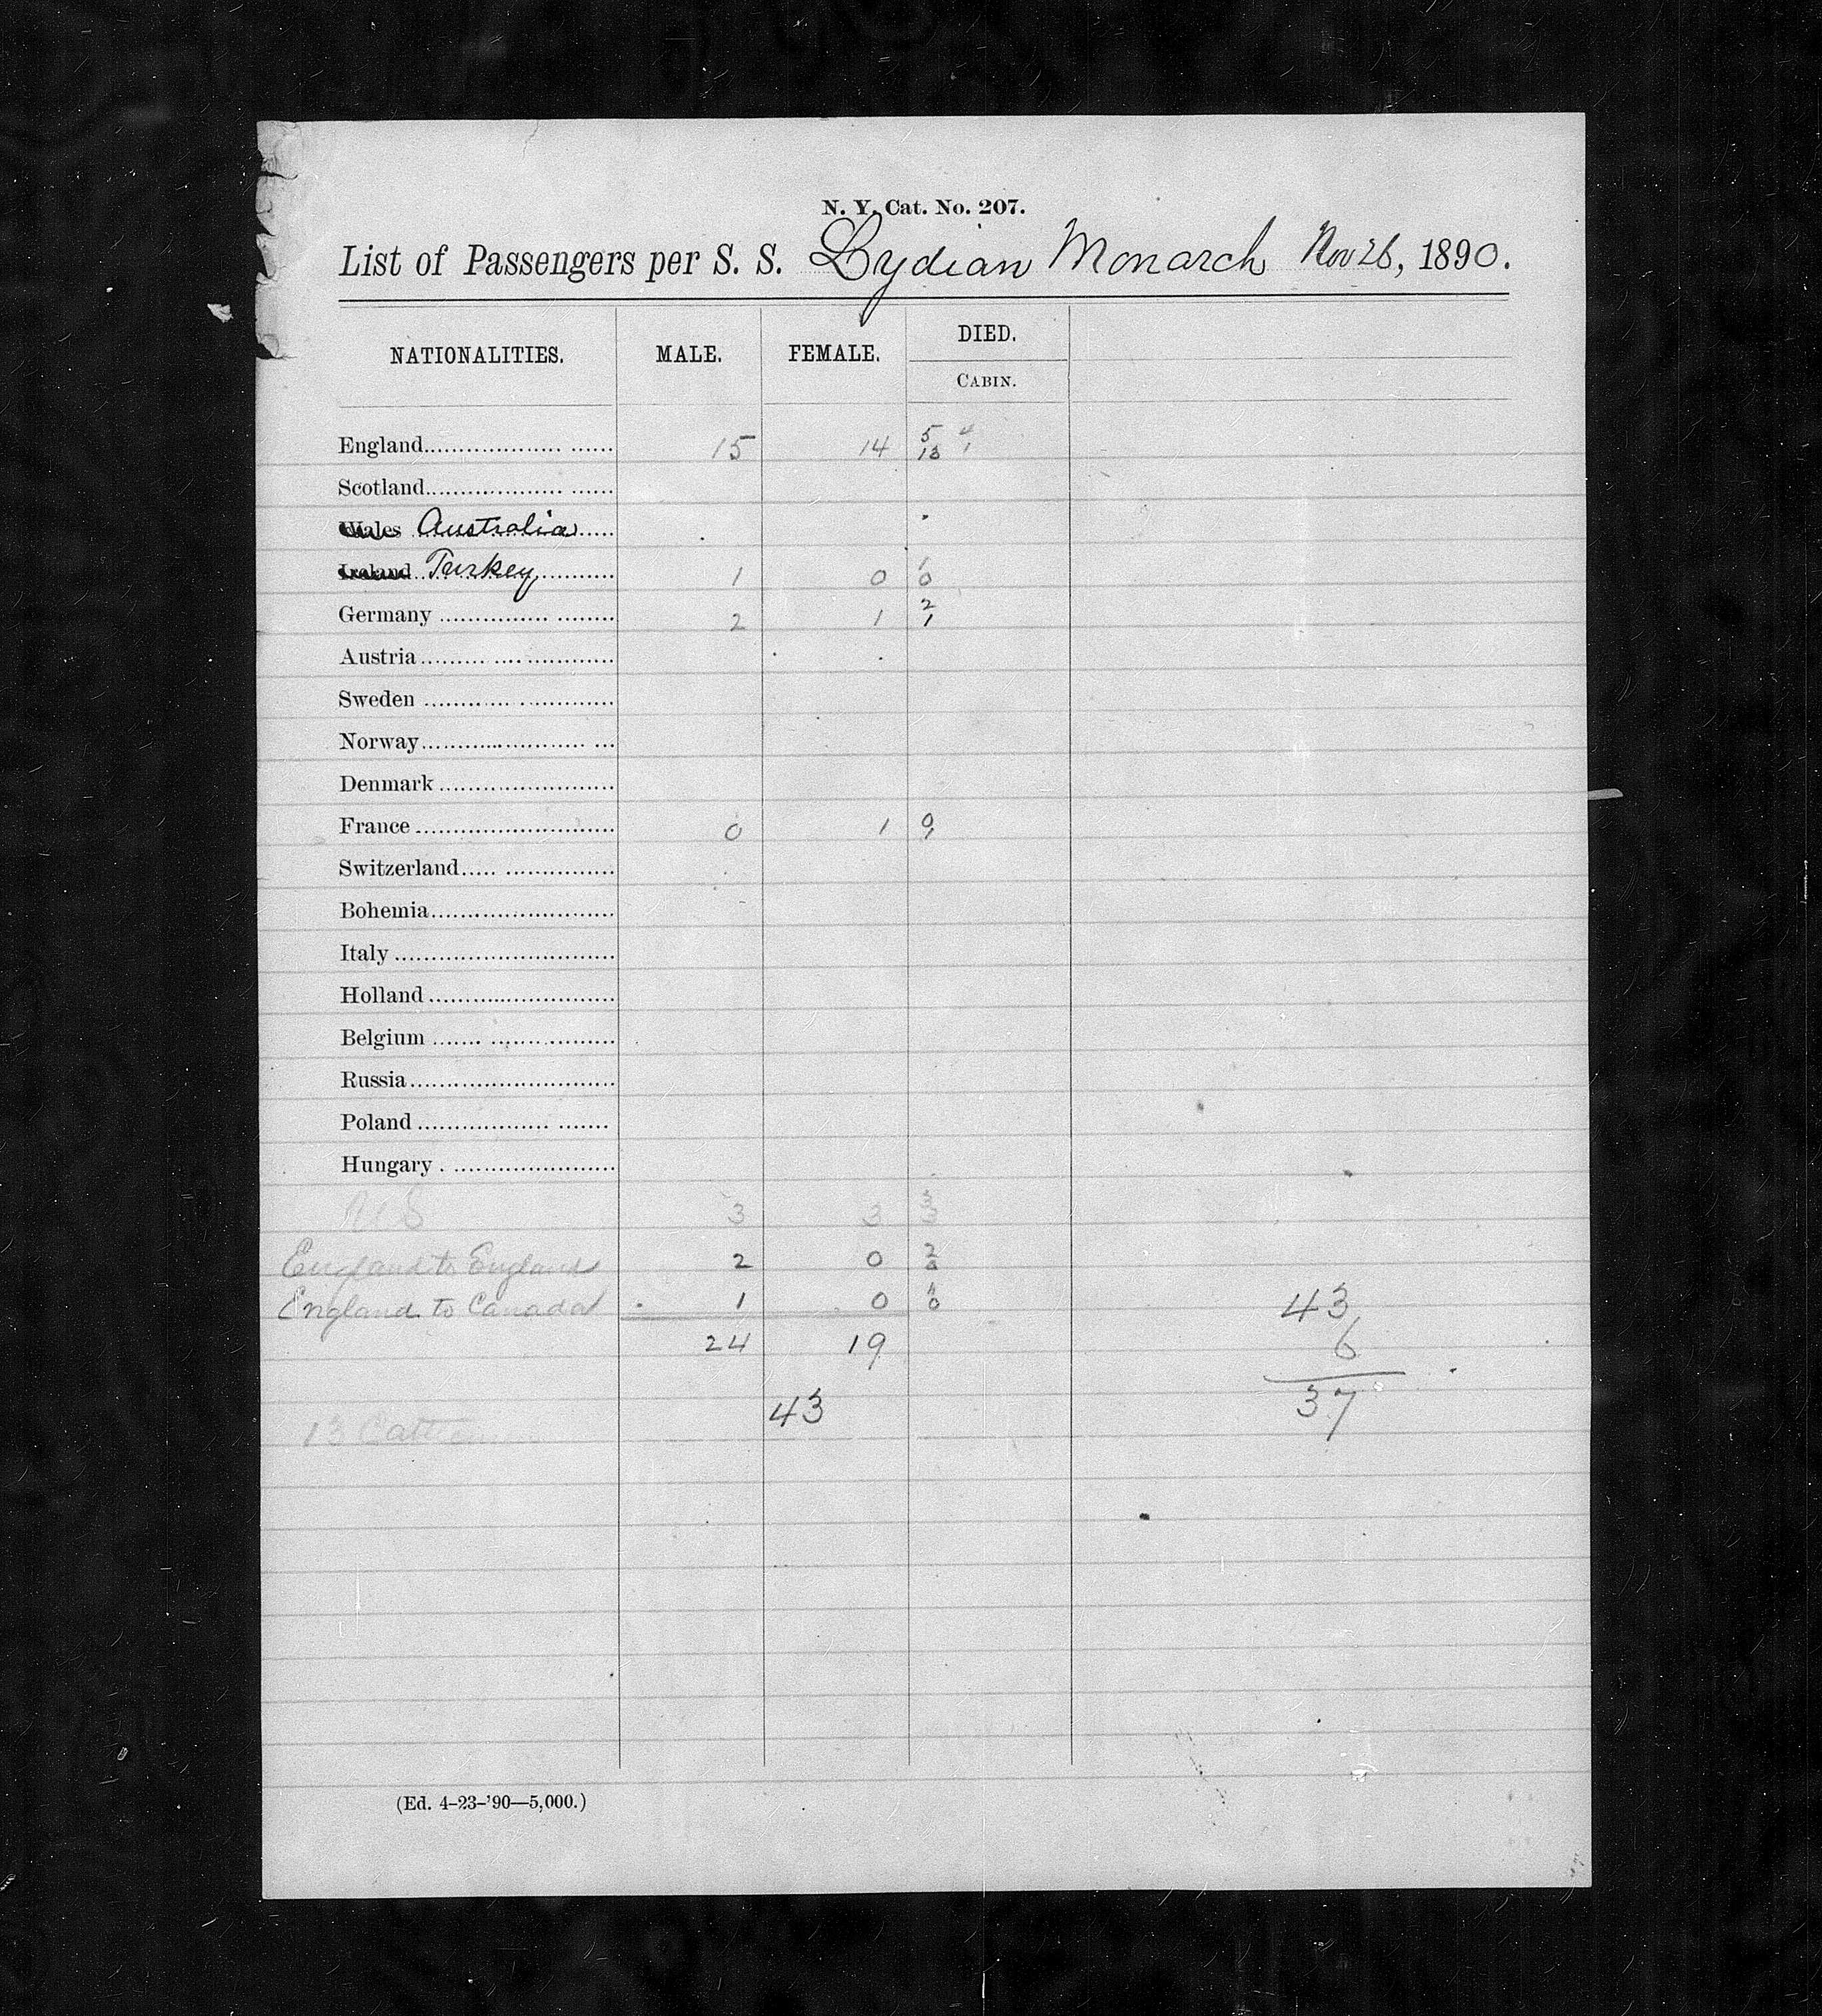 N. Y. Cat. No. 207.
List of Passengers per S. S. Lydian Monarch Nov 26, 1890.
NATIONALITIES. MALE. FEMALE. DIED.
CABIN.
England 15 14 5 4
13 1
Scotland
Wales Australia
Ireland Turkey 1 0 1
0
Germany 2 1 2
1
Austria
Sweden
Norway
Denmark
France 0 1 0
1
Switzerland
Bohemia
Italy
Holland
Belgium
Russia
Poland
Hungary
U S 3 3 3
3
England to England 2 0 2
0
England to Canada 1 0 1
0
43
6
24 19
37
43
13 Cattlemen
(Ed. 4-23-'90—5,000.)